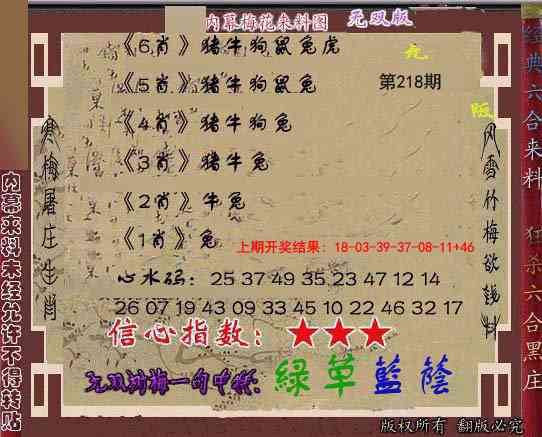 内幕梅花来料图 无双版
《6肖》猪牛狗鼠兔虎
《5肖》猪牛狗鼠兔 第218期
《4肖》猪牛狗兔
《3肖》猪牛兔
《2肖》牛兔
《1肖》兔
上期开奖结果：18-03-39-37-08-11+46
心水码：25 37 49 35 23 47 12 14
26 07 19 43 09 33 45 10 22 46 32 17
信心指数：★★★
无双对梅一句中特：綠草藍蔭
版权所有 翻版必究
寒梅屠庄生肖
内幕来料未经允许不得转贴
风雪竹梅欲钱料
经典六合来料
狂杀六合黑庄